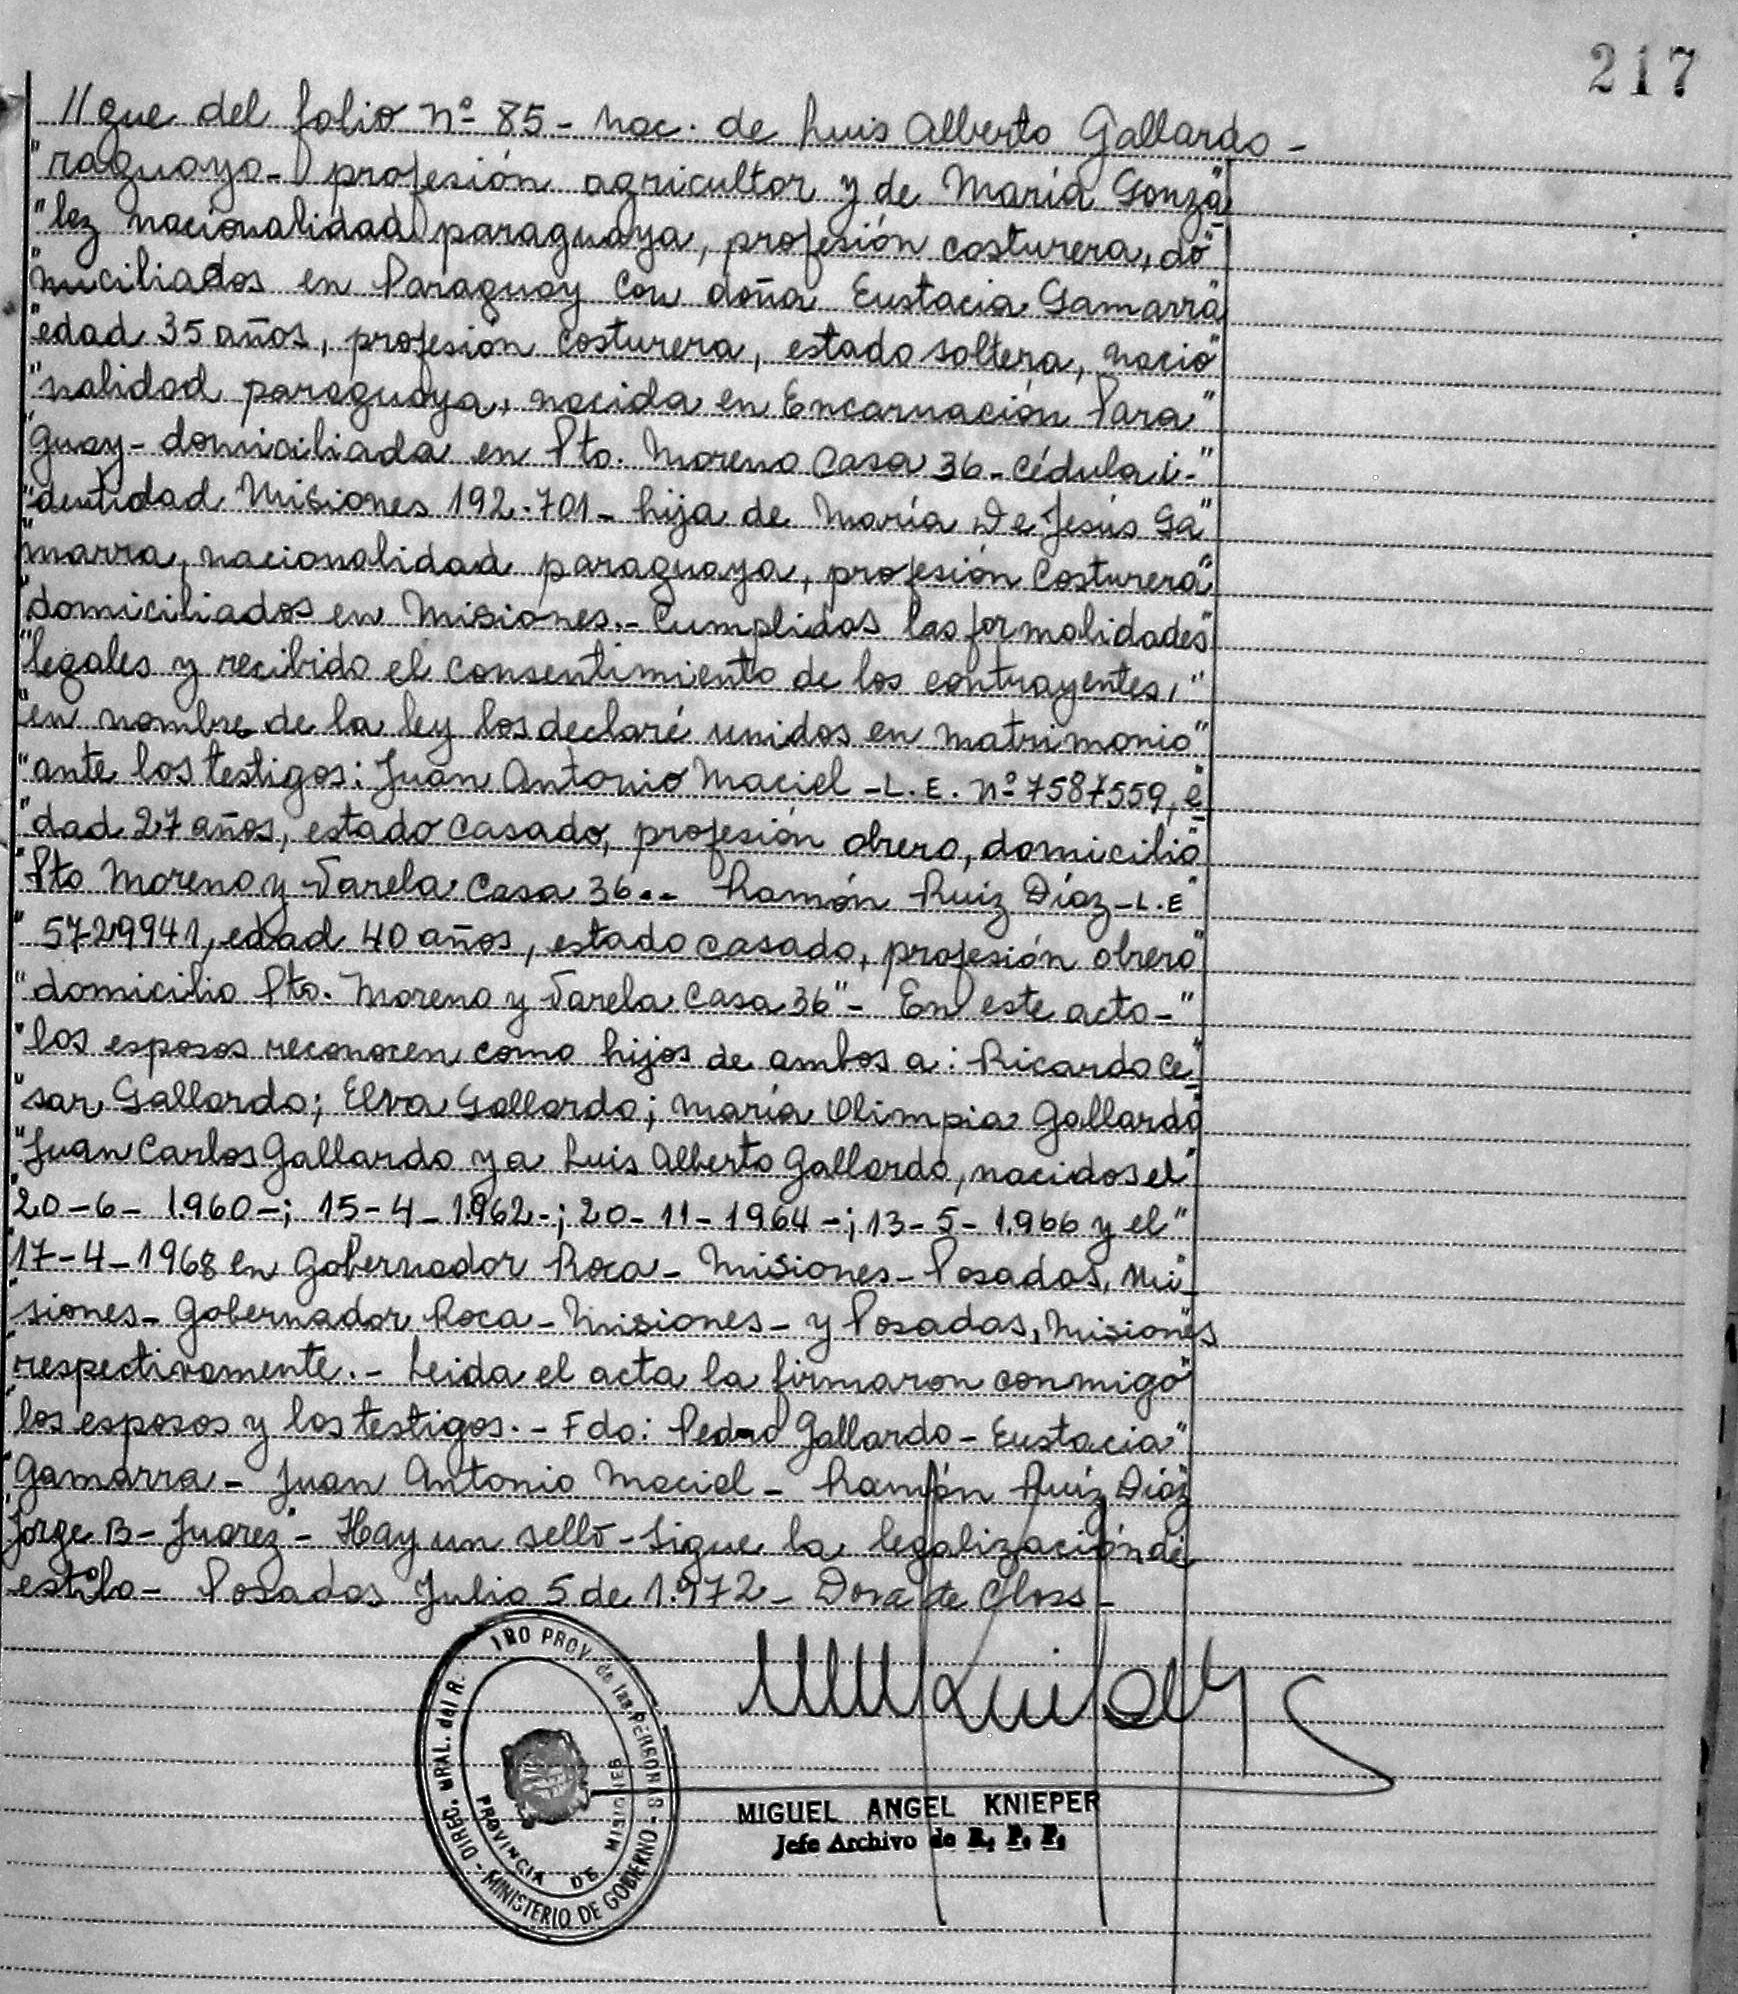 217
//gue del folio Nº 85 - Nac. de Luis Alberto Gallardo -
"raguaya - profesión agricultor y de María Gonzá"
"lez nacionalidad paraguaya, profesión costurera, do"
"miciliados en Paraguay con doña Eustacia Gamarra"
"edad 35 años, profesión costurera, estado soltera, nacio"
"nalidad paraguaya, nacida en Encarnación Para"
"guay - domiciliada en Pto. Moreno Casa 36 - cédula i-"
"dentidad Misiones 192.701 - hija de María De Jesús Ga"
"marra, nacionalidad paraguaya, profesión costurera"
"domiciliados en Misiones.- Cumplidas las formalidades"
"legales y recibido el consentimiento de los contrayentes,"
"en nombre de la ley los declaré unidos en matrimonio"
"ante los testigos: Juan Antonio Maciel - L. E. Nº 7587559, e"
"dad 27 años, estado casado, profesión obrero, domicilio"
"Pto Moreno y Varela Casa 36.- Ramón Ruiz Díaz - L.E"
"5729941, edad 40 años, estado casado, profesión obrero"
"domicilio Pto. Moreno y Varela Casa 36"- En este acto -"
"los esposos reconocen como hijos de ambos a: Ricardo Ce"
"sar Gallardo; Elva Gallardo; María Olimpia Gallardo"
"Juan Carlos Gallardo y a Luis Alberto Gallardo, nacidos el"
"20-6-1.960-; 15-4-1.962-; 20-11-1964-; 13-5-1.966 y el"
"17-4-1968 en Gobernador Roca - Misiones - Posadas, Mi"
"siones - Gobernador Roca - Misiones - y Posadas, Misiones
"respectivamente.- Leida el acta la firmaron conmigo"
"los esposos y los testigos.- Fdo: Pedro Gallardo - Eustacia"
"Gamarra - Juan Antonio Maciel - Ramón Ruíz Díaz"
"Jorge B - Juarez"- Hay un sello - Sigue la legalización de
estilo - Posadas Julio 5 de 1.972 - Dora de Closs -
DIREC. GRAL. del R. PROV. de las PERSONAS - MINISTERIO DE GOBIERNO -
PROVINCIA DE MISIONES
MIGUEL ANGEL KNIEPER
Jefe Archivo de R. P. P.